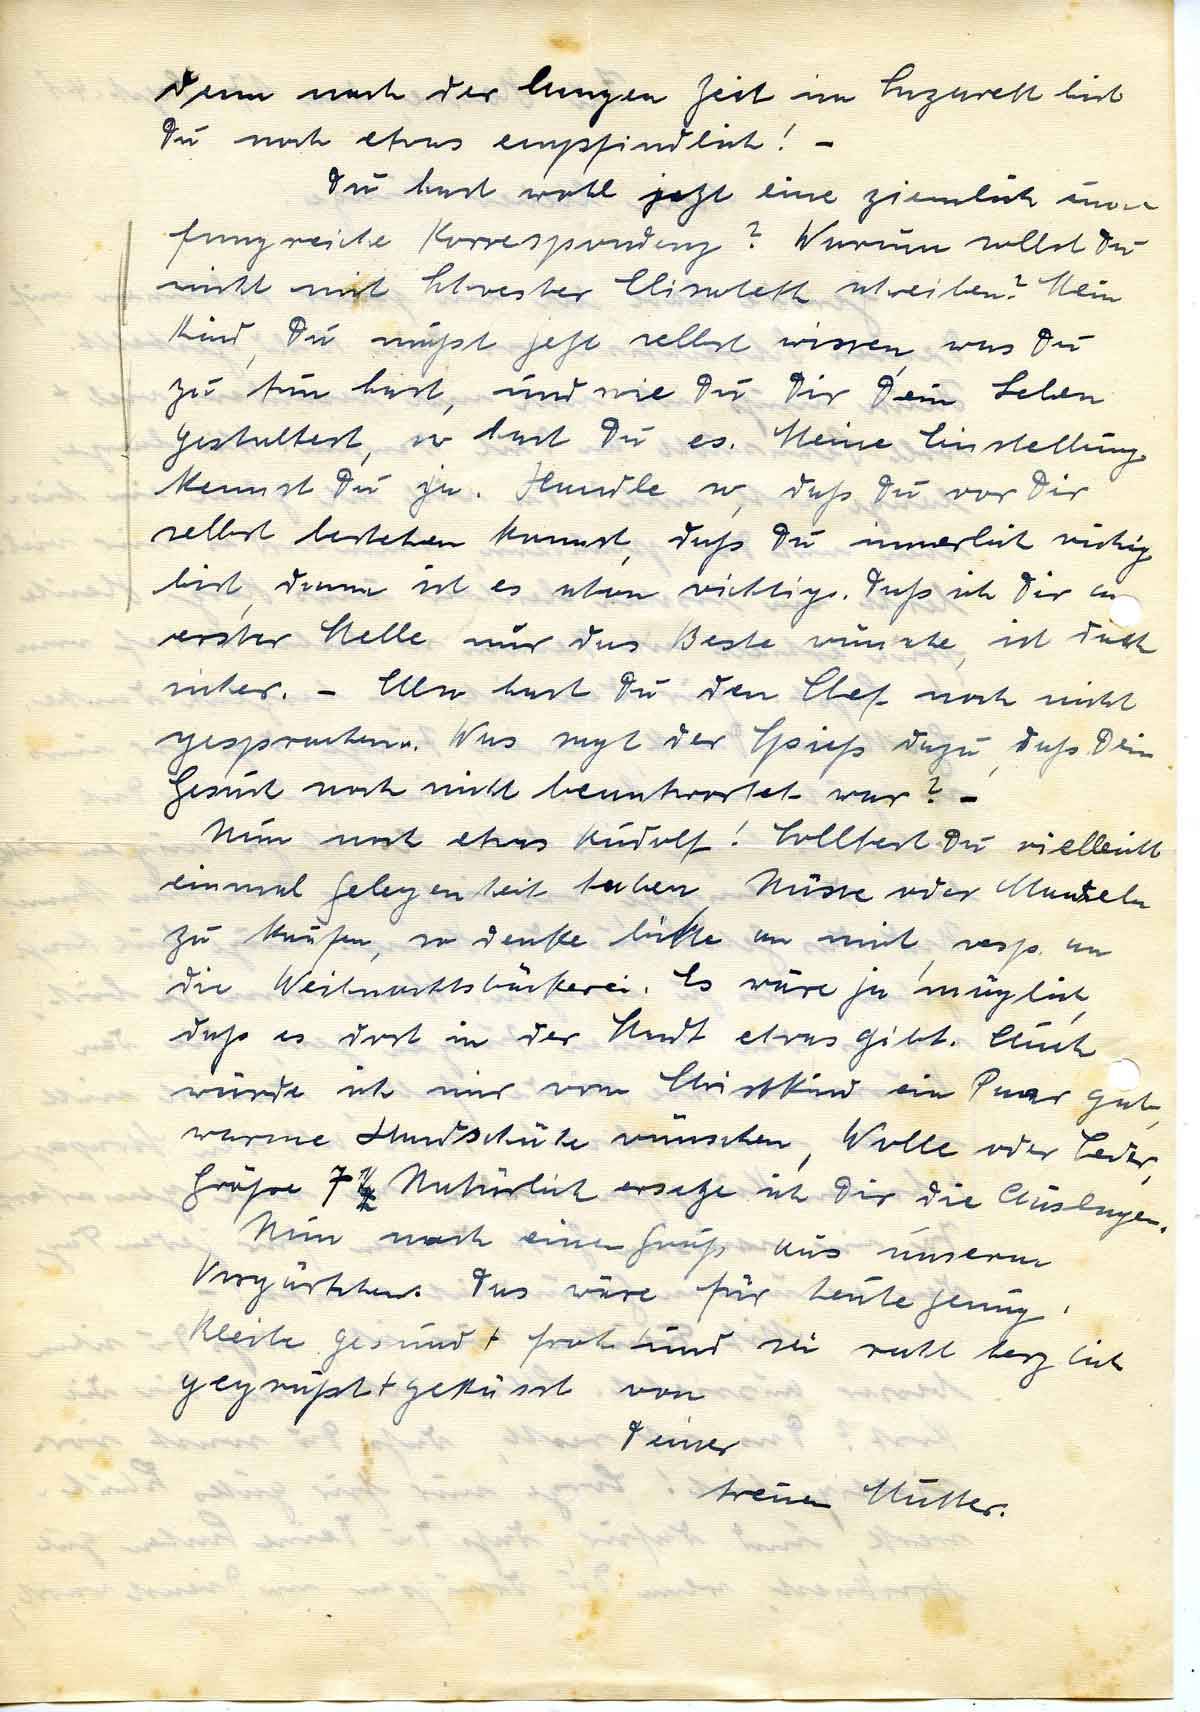 denn nach der langen Zeit im Lazarett bist
Du noch etwas empfindlich! –
Du hast wohl jetzt eine ziemlich um-
fangreiche Korrespondenz? Warum sollst Du
nicht mit Schwester Elisabeth schreiben? Mein
Kind, Du mußt jetzt selbst wissen, was Du
zu tun hast, und wie Du Dir Dein Leben
gestaltest, so hast Du es. Meine Einstellung
kennst Du ja. Handle so, daß Du vor Dir
selbst bestehen kannst, daß Du innerlich richtig
bist, dann ist es schon richtig. Daß ich Dir an
erster Stelle nur das Beste wünsche, ist doch
sicher. – Also hast Du den Chef noch nicht
gesprochen. Was sagt der Spieß dazu, daß Dein
Gesuch noch nicht beantwortet war? –
Nun noch etwas Rudolf! Solltest Du vielleicht
einmal Gelegenheit haben, Nüsse oder Mandeln
zu kaufen, so denke bitte an mich, resp. an
die Weihnachtsbäckerei. Es wäre ja möglich,
daß es dort in der Stadt etwas gibt. Auch
würde ich mir vom Christkind ein Paar gute,
warme Handschuhe wünschen, Wolle oder Leder,
Größe 7 1/2 Natürlich ersetze ich Dir die Auslagen.
Nun noch einen Gruß aus unserm
Vorgärtchen. Das wäre für heute genug.
Bleibe gesund + froh und sei recht herzlich
gegrüßt + geküsst von
Deiner
treuen Mutter.